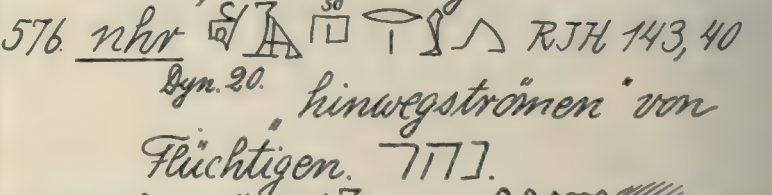 576. nhr RJH 143,40
Dyn. 20. „hinwegströmen“ von
Flüchtigen. נהר.